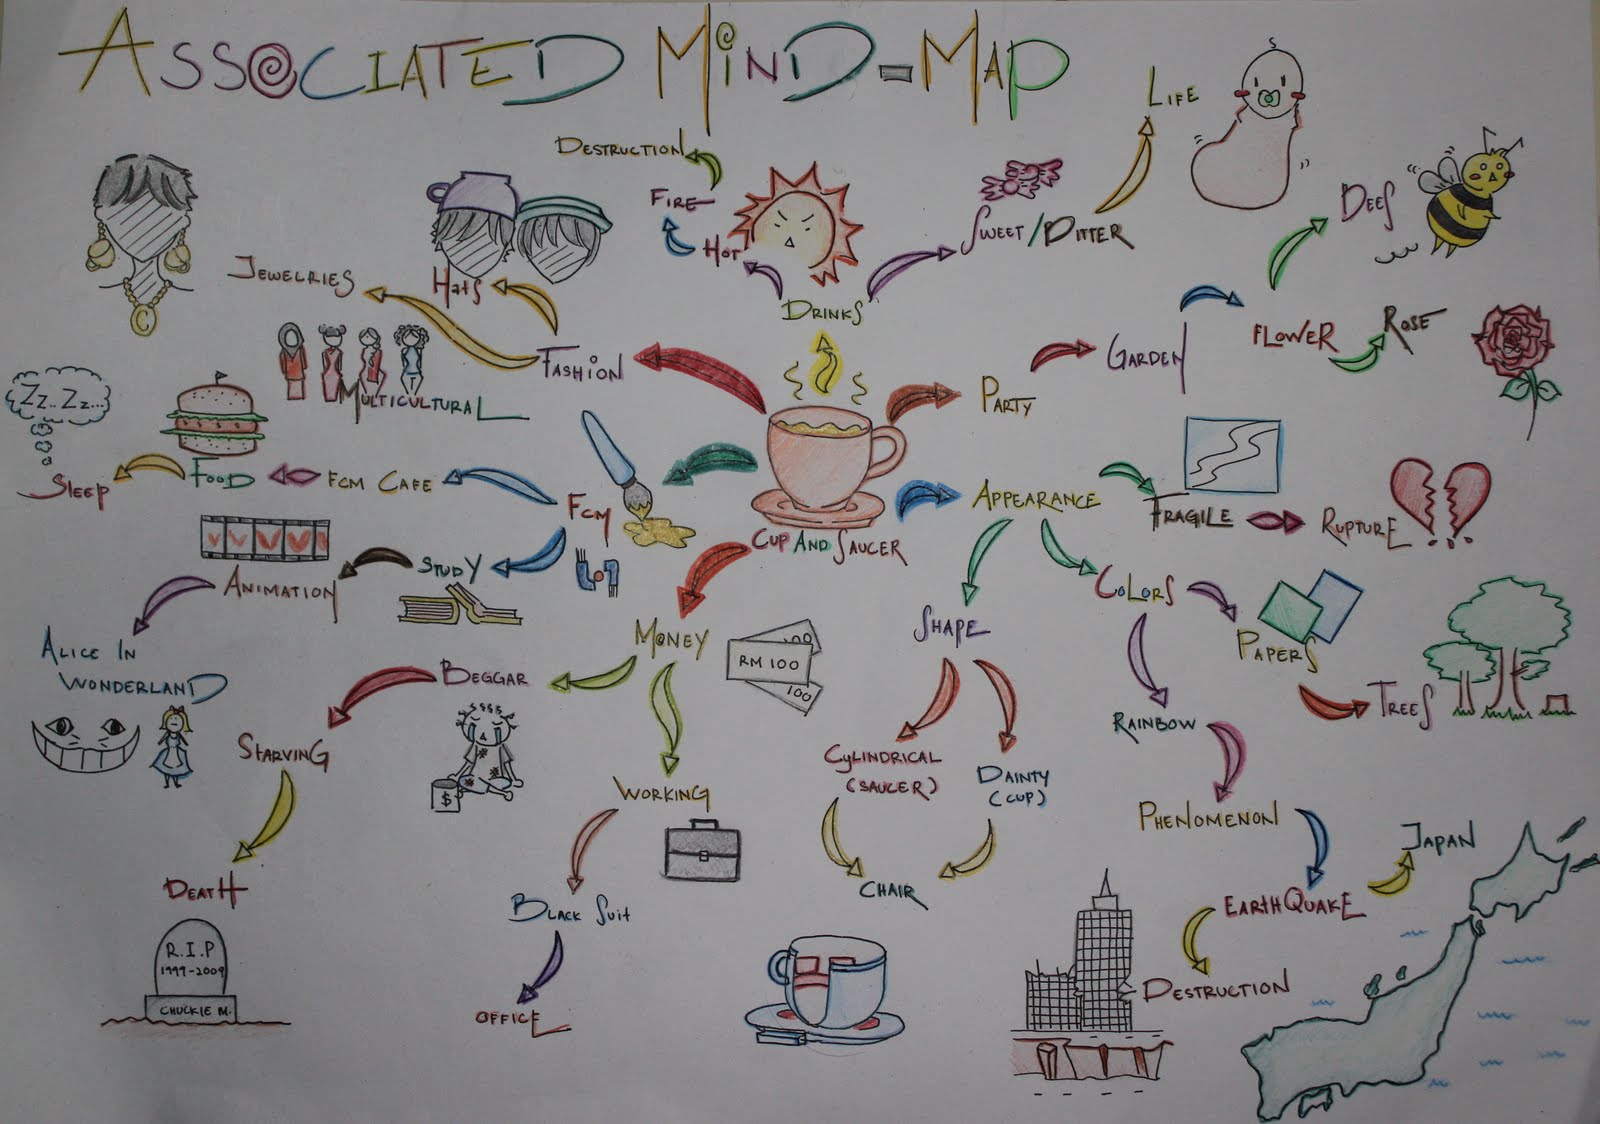 ASSOCIATED MIND-MAP
LIFE
DESTRUCTION
FIRE
HOT
SWEET/BITTER
BEES
JEWELRIES
HATS
DRINKS
FLOWER
ROSE
FASHION
GARDEN
MULTICULTURAL
PARTY
ZZ..ZZ...
SLEEP
FOOD
FCM CAFE
FCM
APPEARANCE
FRAGILE
RUPTURE
CUP AND SAUCER
STUDY
ANIMATION
COLORS
ALICE IN
WONDERLAND
MONEY
RM 100
100
100
SHAPE
PAPERS
TREES
BEGGAR
$
STARVING
RAINBOW
CYLINDRICAL
(SAUCER)
DAINTY
(CUP)
WORKING
PHENOMENON
JAPAN
DEATH
R.I.P
1999-2009
CHUCKIE M.
BLACK SUIT
CHAIR
EARTHQUAKE
DESTRUCTION
OFFICE
C